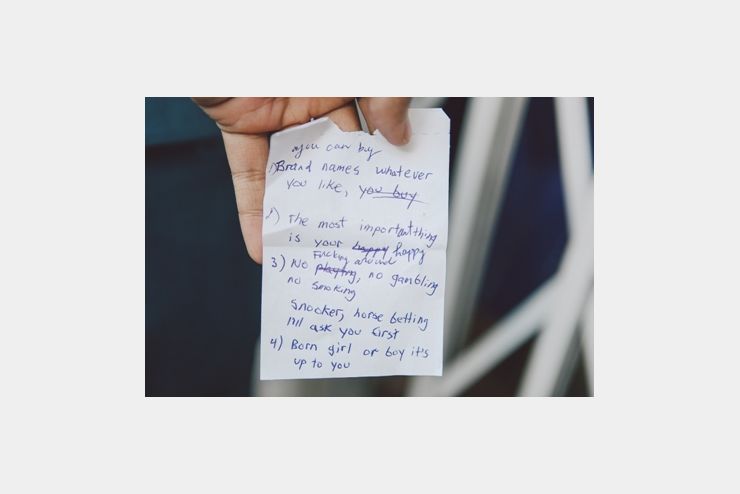 you can buy
1) Brand names whatever
you like, you buy
2) The most important thing
is your happy happy
Fucking around
3) No playing, no gambling
no smoking
Snooker, horse betting
I'll ask you first
4) Born girl or boy it's
up to you